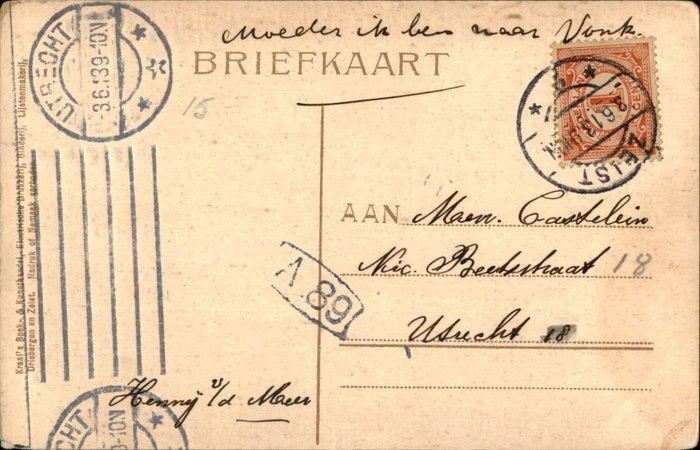 Moeder ik ben naar Vonk.
BRIEFKAART
UTRECHT
3.6.13 9-10N
15-
1
CENT
ZEIST
3.6.13
AAN Mevr. Castelein
Nic. Beetsstraat 18
Utrecht 18
A 89
Henny v/d Meer
Kraal's Boek- & Kunsthandel, Electrische Drukkerij, Binderij, Lijstenmakerij,
Driebergen en Zeist. Nadruk of Namaak verboden.